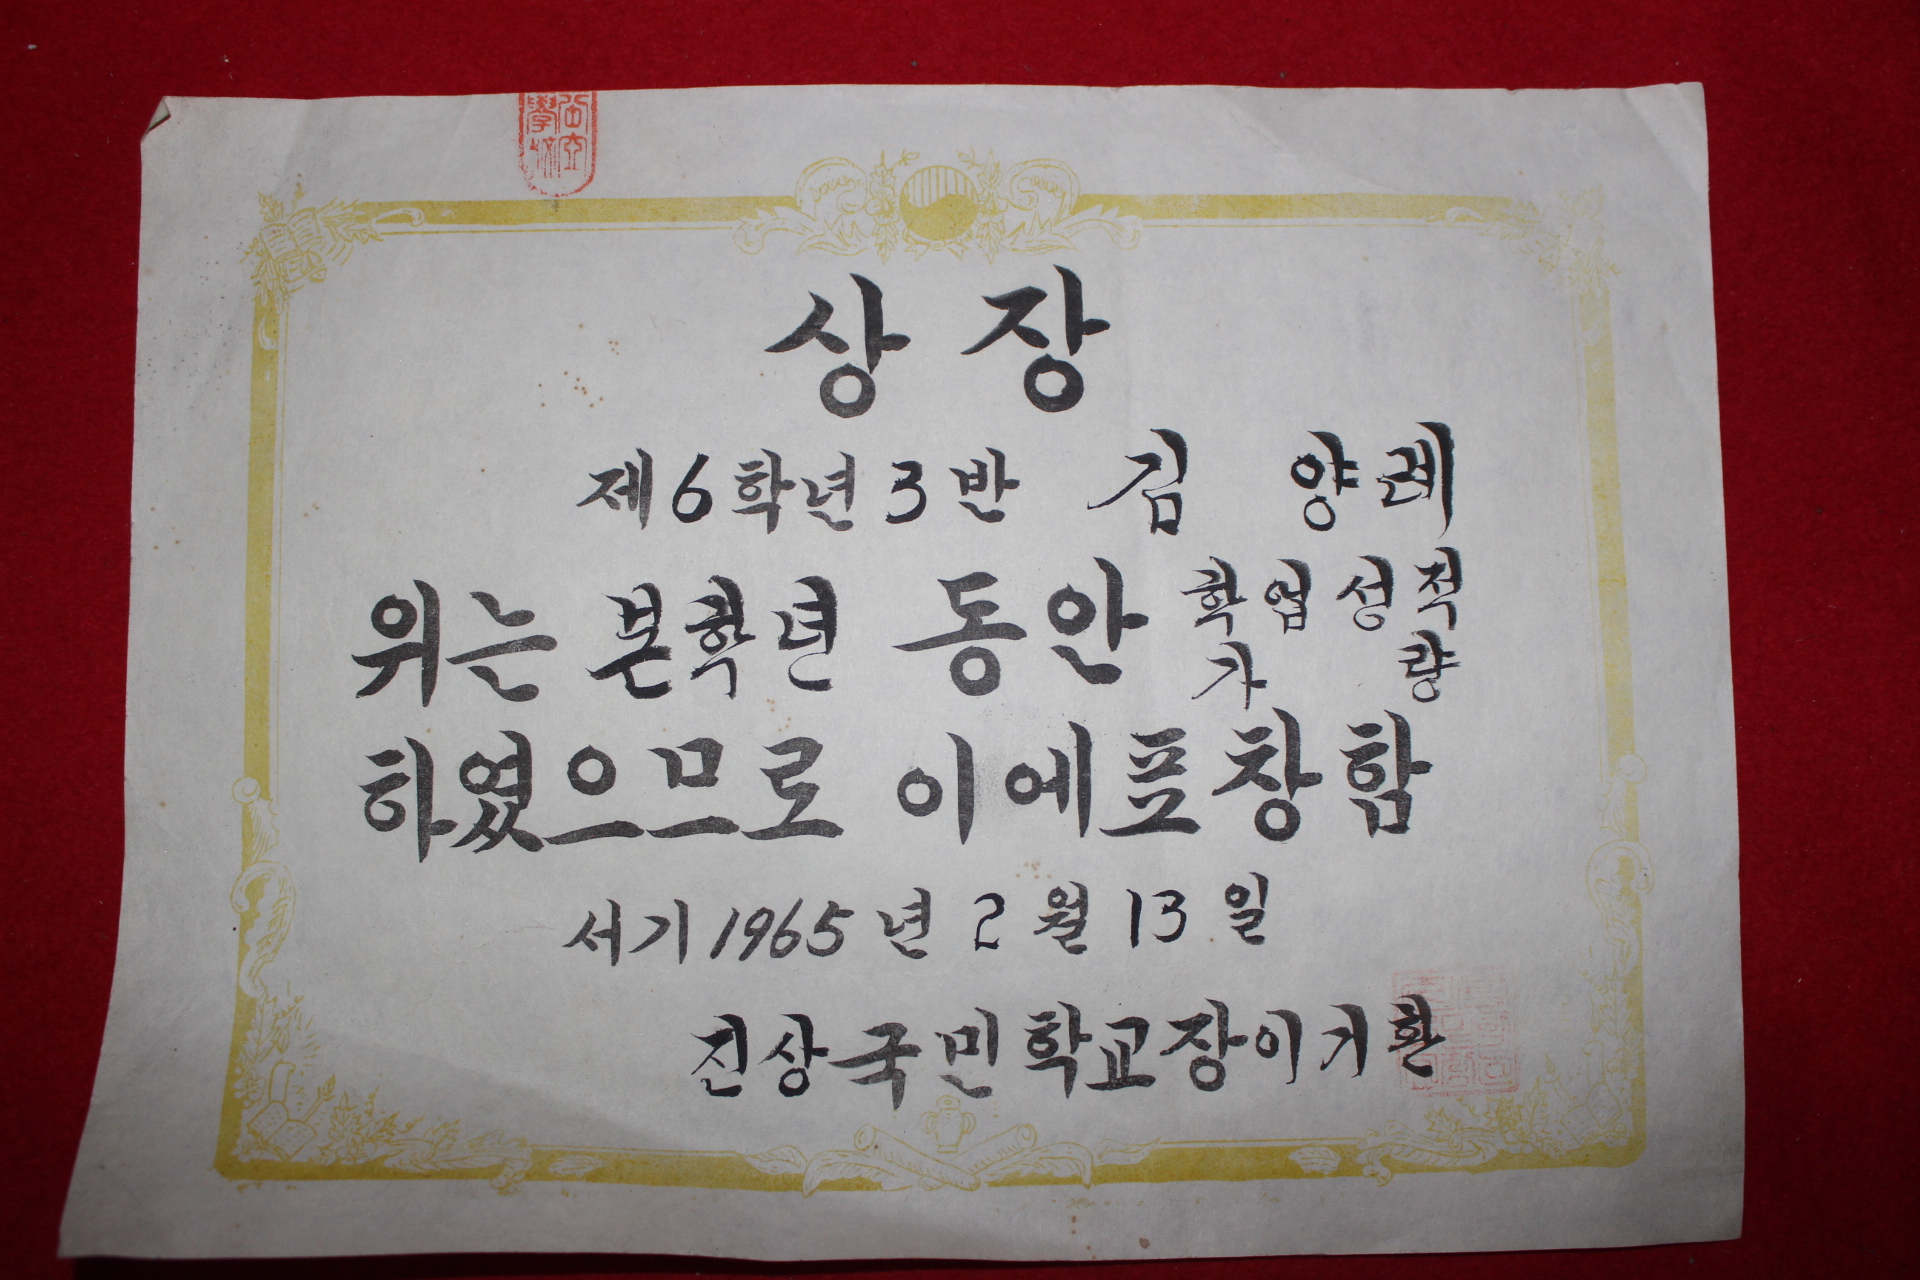 상장
제6학년3반 김 양례
위는 본학년 동안 학업성적
가량
하였으므로 이에표창함
서기1965년 2월 13일
진상국민학교장이기환